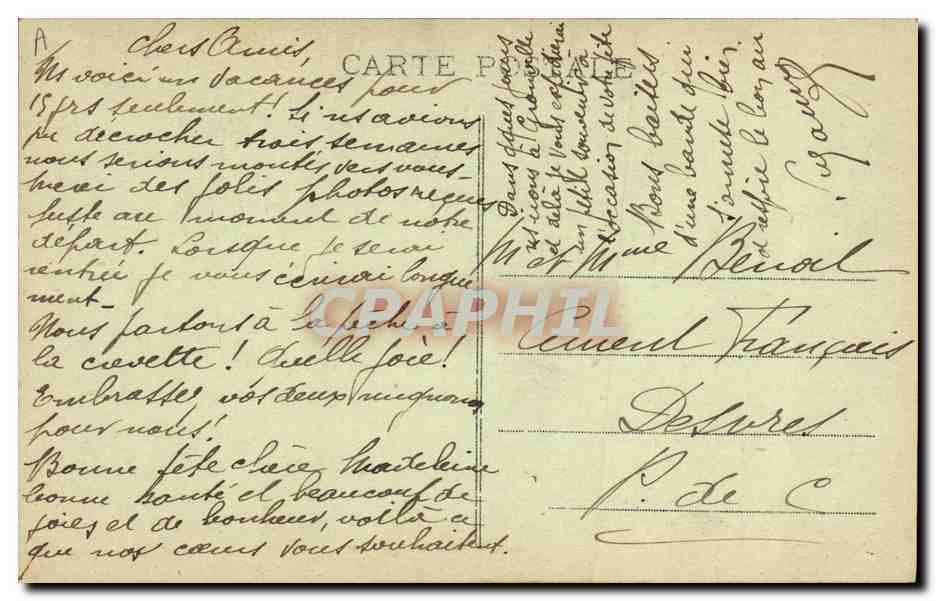 A
Chers Amis,
CARTE POSTALE
Ns voici en vacances pour
15 jrs seulement! Si ns avions
pu décrocher trois semaines
nous serions montés vers vous -
merci des jolis photos reçues
juste au moment de notre
départ. Lorsque je serai
rentrée je vous écrirai longue
ment -
Nous partons à la pêche à
la crevette! Quelle joie!
Embrassez vos deux mignons
pour nous!
Bonne fête chère Madeleine
bonne santé et beaucoup de
joies et de bonheur, voilà ce
que nos cœurs vous souhaitent.
Dans quelques jours
ns irons à Granville
et de là je vous expédierai
un petit souvenir à
l'occasion de votre fête
Bons baisers
d'une bande qui
s'amuse bien
et respire le bon air
M et Mme Benoit
Ciment Français
Desvres
P. de C
CPAPHIL